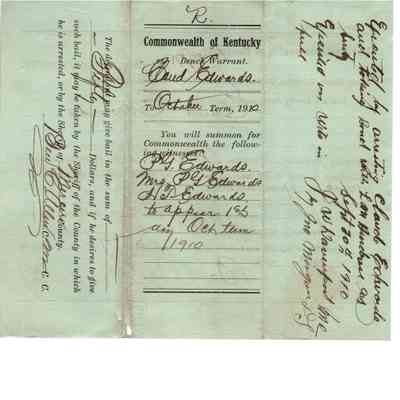 R.
Commonwealth of Kentucky
vs. Bench Warrant.
Claud Edwards.
To October Term, 1910
You will summon for
Commonwealth the follow-
ing witnesses
P G Edwards.
Mrs P G Edwards
to appear 1st
day Oct term
1910
The defendant may give bail in the sum of
Fifty
Dollars, and if he desires to give
such bail, it may be taken by the Sheriff of the County in which
he is arrested, or by the Sheriff of County.
C. C.
Executed by arresting Claud Edwards
and taking bond with
Sept 20th 1910
J W Davenport
by Jno Morgan D.S.